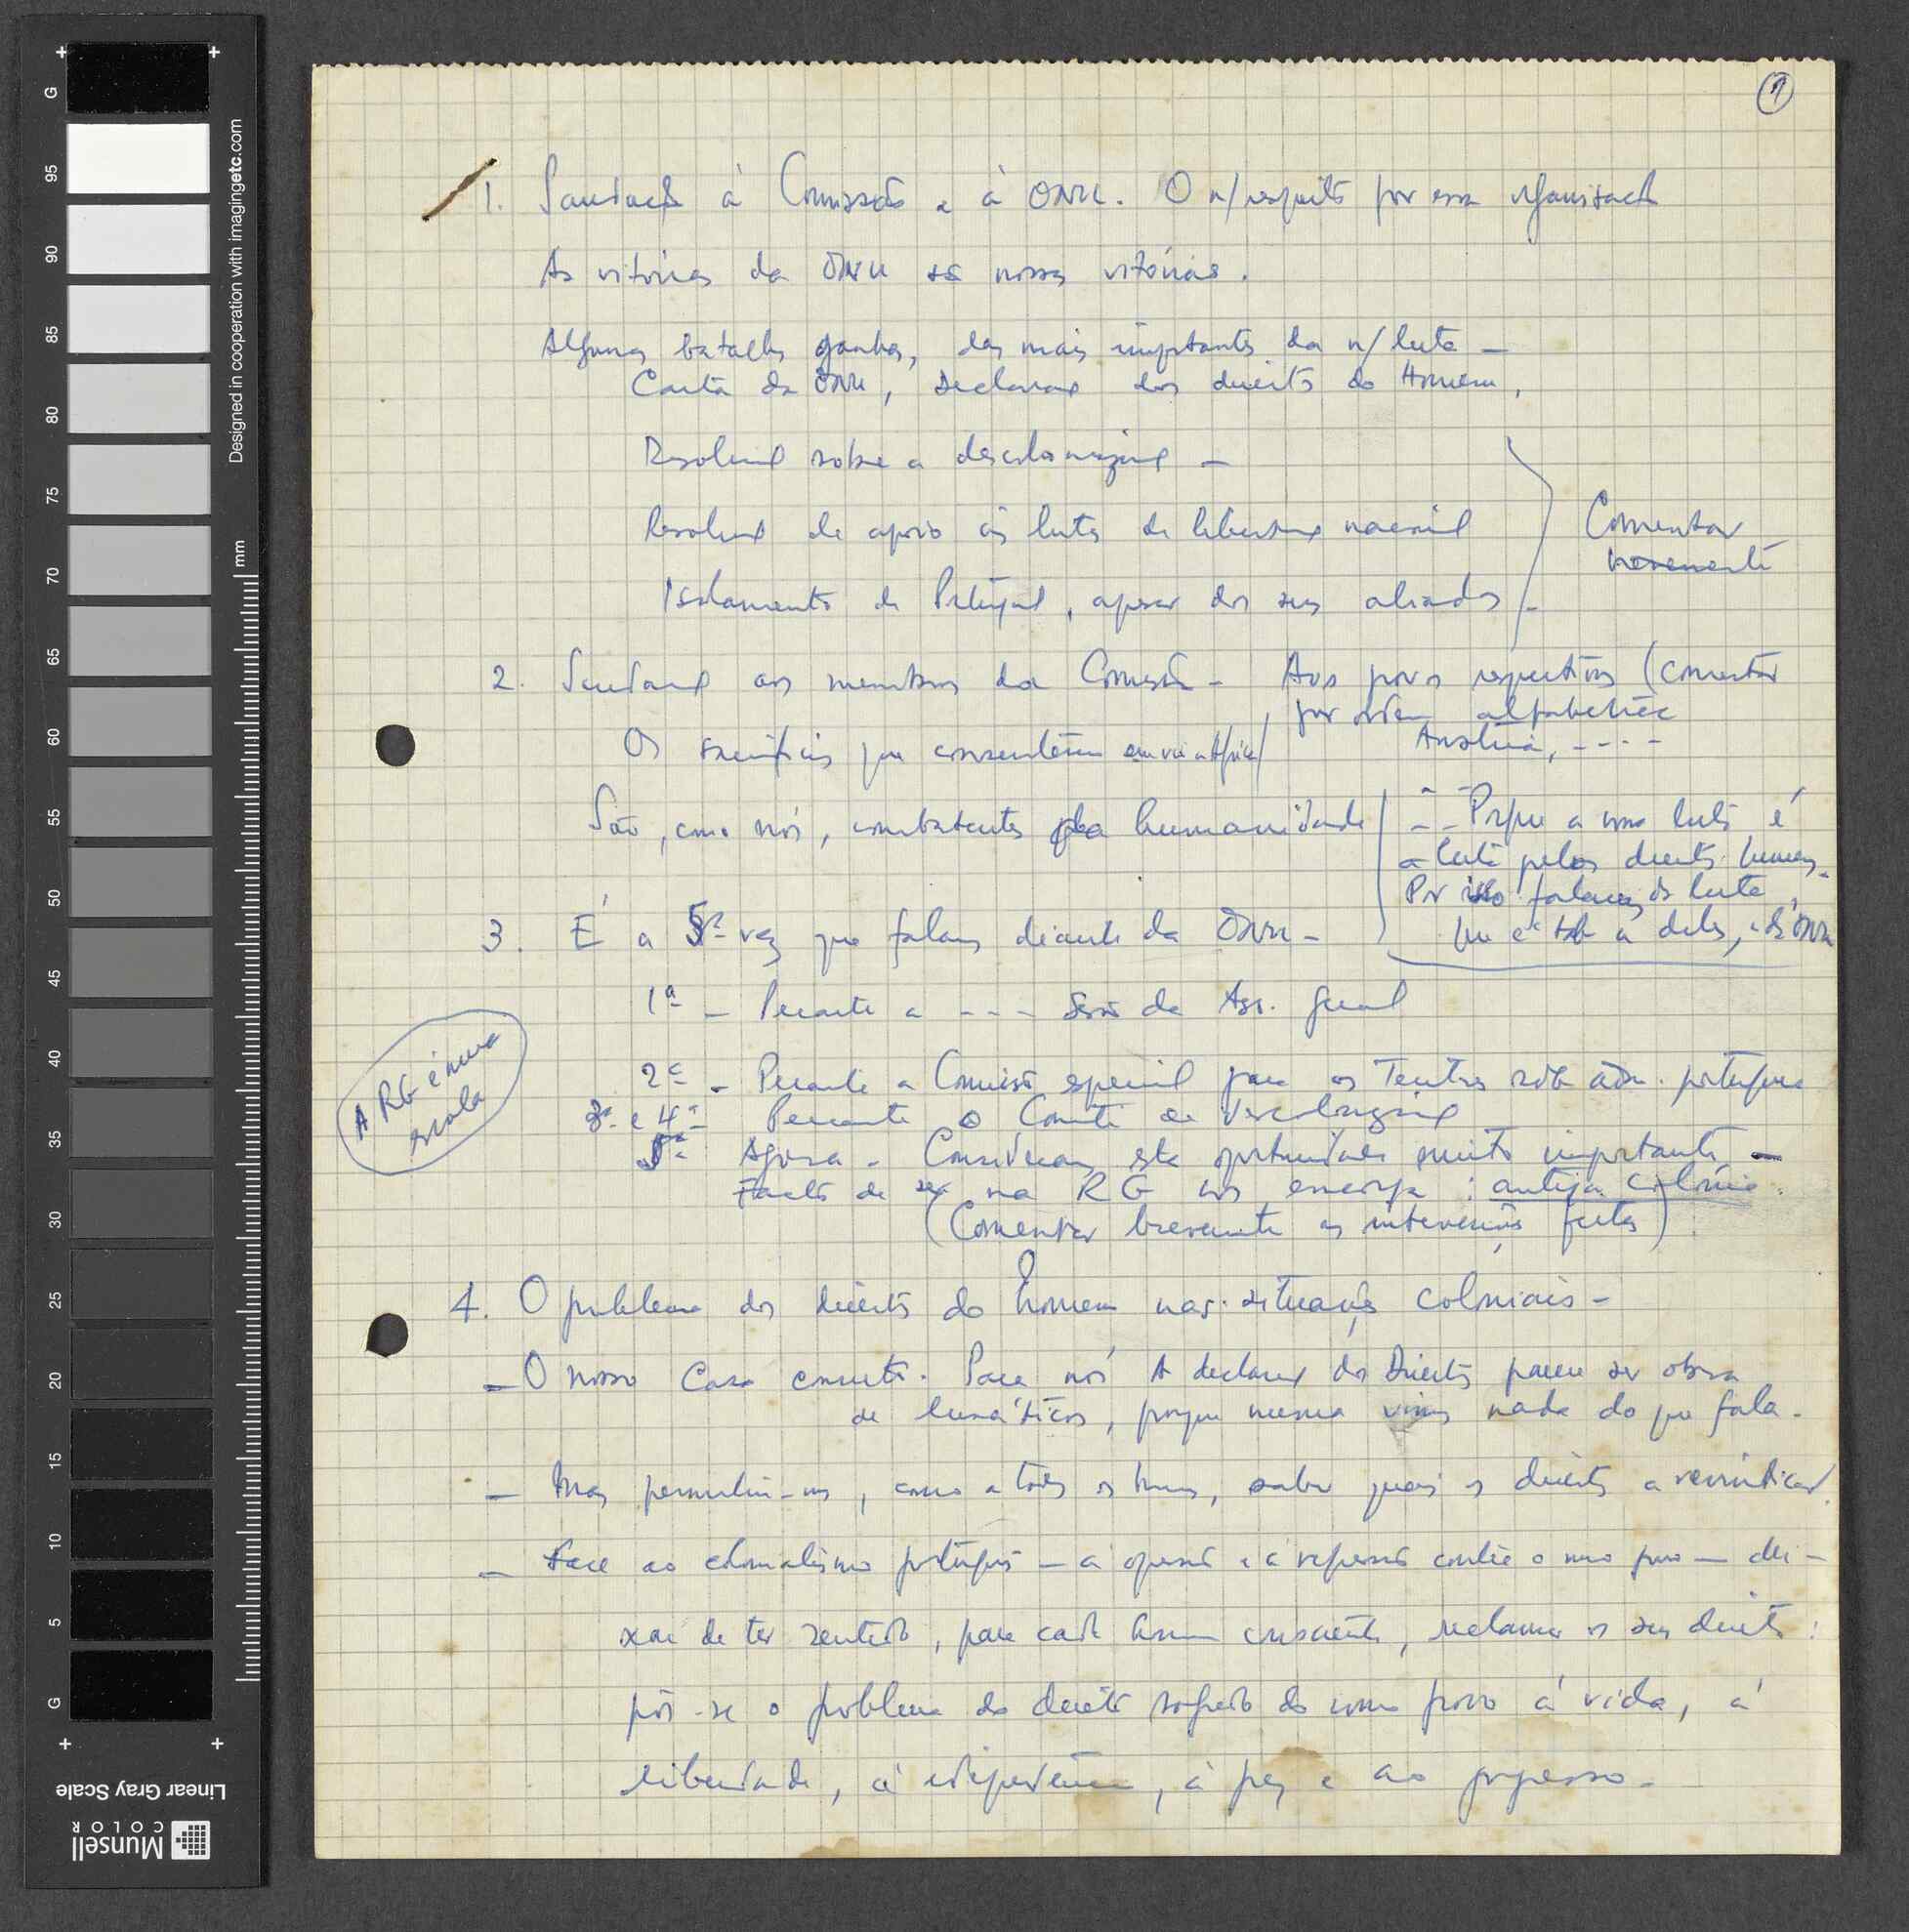 1
1. Saudação à Comissão e à ONU. O n/respeito por essa organização
As vitórias da ONU são nossas vitórias.
Algumas batalhas ganhas, das mais importantes da n/luta —
Carta da ONU, Declaração dos direitos do Homem,
Resolução sobre a descolonização —
Resolução de apoio às lutas de libertação nacional
Isolamento de Portugal, apesar dos seus aliados —
Comentar
brevemente
2. Saudação aos membros da Comissão — Aos povos respectivos (comentar
por ordem alfabética
Austria, ----
Os sacrifícios que consentiram em vir a África
São, como nós, combatentes pela humanidade
-- Porque a nossa luta é
a luta pelos direitos humanos.
Por isso falamos da luta
que é tb a deles, e da ONU
3. É a 5ª vez que falamos diante da ONU —
1ª — Perante a --- Sessão da Ass. Geral
2ª — Perante a Comissão especial para os Territórios sob adm. portuguesa
3ª e 4ª Perante o Comité de Descolonização
5ª Agora — Consideramos esta oportunidade muito importante —
Facto de ser na RG nos encoraja : antiga colónia.
(Comentar brevemente as intervenções feitas)
A RG é uma
escola
4. O problema dos direitos do homem nas situações coloniais —
— O nosso caso concreto. Para nós A declaração dos Direitos parece ser obra
de lunáticos, porque nunca vimos nada do que fala.
— Mas permitiu-nos, como a todos os homens, saber quais os direitos a reivindicar.
— Face ao colonialismo português — à opressão e à repressão contra o nosso povo — dei-
xou de ter sentido, para cada homem consciente, reclamar os seus direitos :
pôs-se o problema do direito sagrado do nosso povo à vida, à
liberdade, à independência, à paz e ao progresso.
G
95
90
85
80
75
70
65
60
55
50
45
40
35
30
25
20
15
10
5
G
mm
Designed in cooperation with imagingetc.com
Linear Gray Scale
Munsell
COLOR